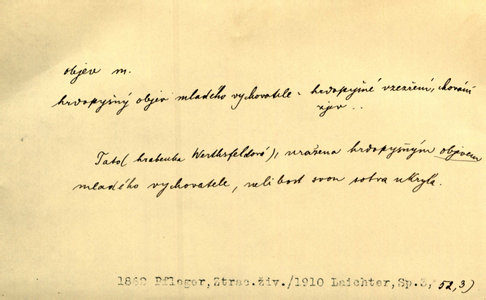 objev m.
hrdopyšný objev mladého vychovatele - hrdopyšné vzezření, chování
zjev ..
Tato (hraběnka Werthsfeldová), uražena hrdopyšným objevem
mladého vychovatele, nelibost svou sotva ukryla.
1862 Pfleger, Ztrac.živ./1910 Laichter, Sp.3, 52,3)